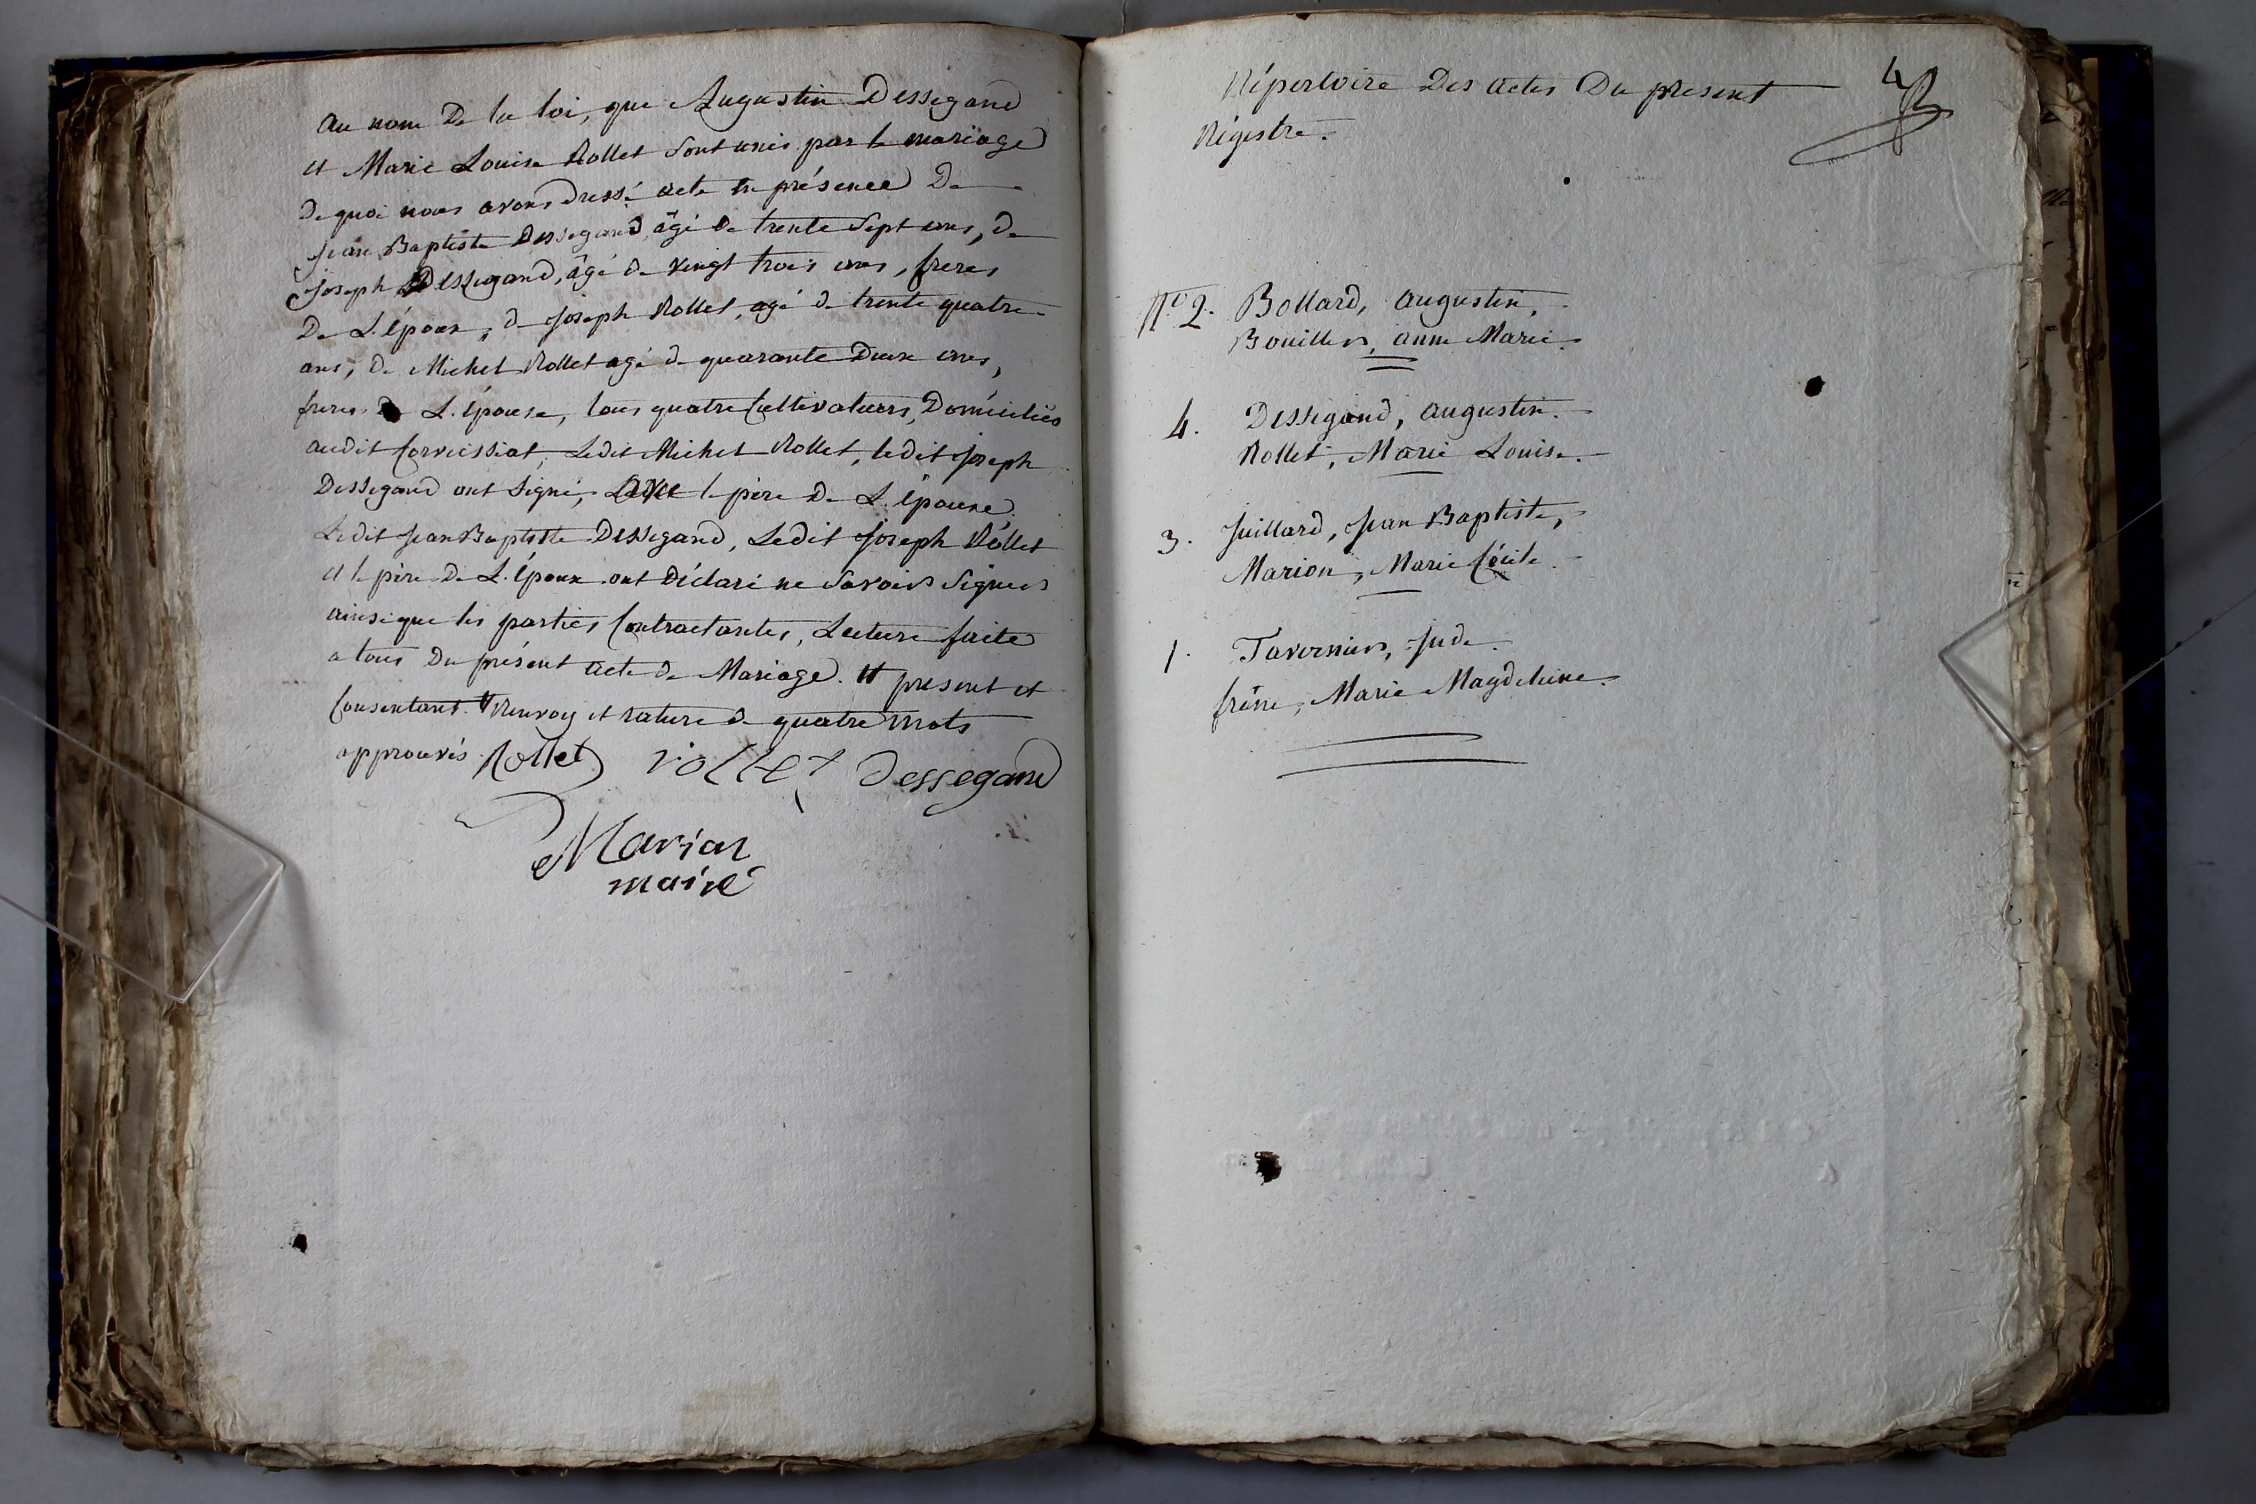 au nom De la loi, que Augustin Dessegand
et Marie Louise Rollet sont unis par le mariage
De quoi nous avons Dressé acte en présence De
Jean Baptiste Dessegand, âgé de trente sept ans, de
Joseph Dessegand, âgé de vingt trois ans, freres
De L'époux, de Joseph Rollet, agé de trente quatre
ans, De Michel Rollet agé de quarante Deux ans,
freres de L'épouse, tous quatre Cultivateurs, Domiciliés
audit Corveissiat, Ledit Michel Rollet, ledit Joseph
Dessegand ont signé, avec le père De L'épouse.
Ledit Jean Baptiste Dessegand, Ledit Joseph Rollet
et le père De L'époux ont Déclaré ne savoir signer
ainsi que les parties Contractantes, Lecture faite
a tous Du présent acte de Mariage. # present et
Consentant. # Renvoy et rature de quatre mots
approuvés Rollet rollet Dessegand
Marion
maire
4
Répertoire Des actes Du présent
Régistre.
N.o 2. Bollard, augustin,
Bouiller, anne Marie.
4. Dessegand, augustin.
Rollet, Marie Louise.
3. Juillard, Jean Baptiste,
Marion, Marie Cécile.
1. Tavernier, Jude.
frêne, Marie Magdeleine.